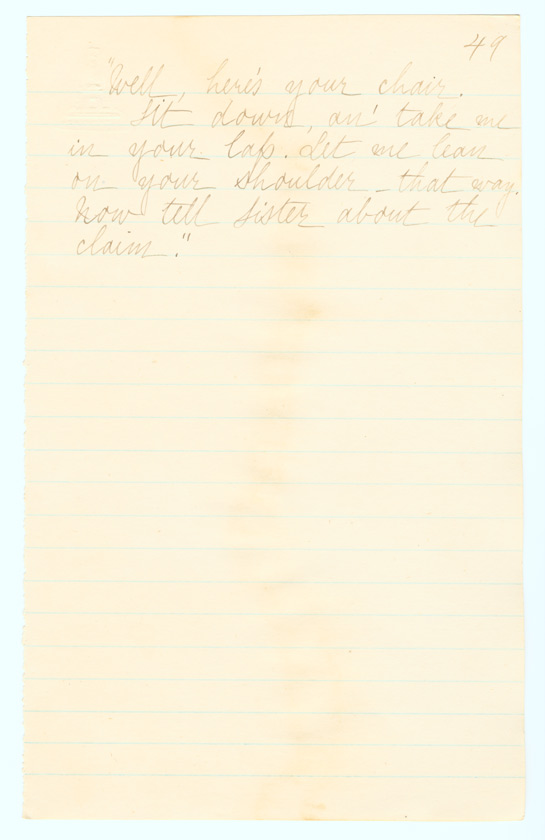 49
"Well, here's your chair.
Sit down, an' take me
in your lap. Let me lean
on your shoulder - that way.
Now tell sister about the
claim."